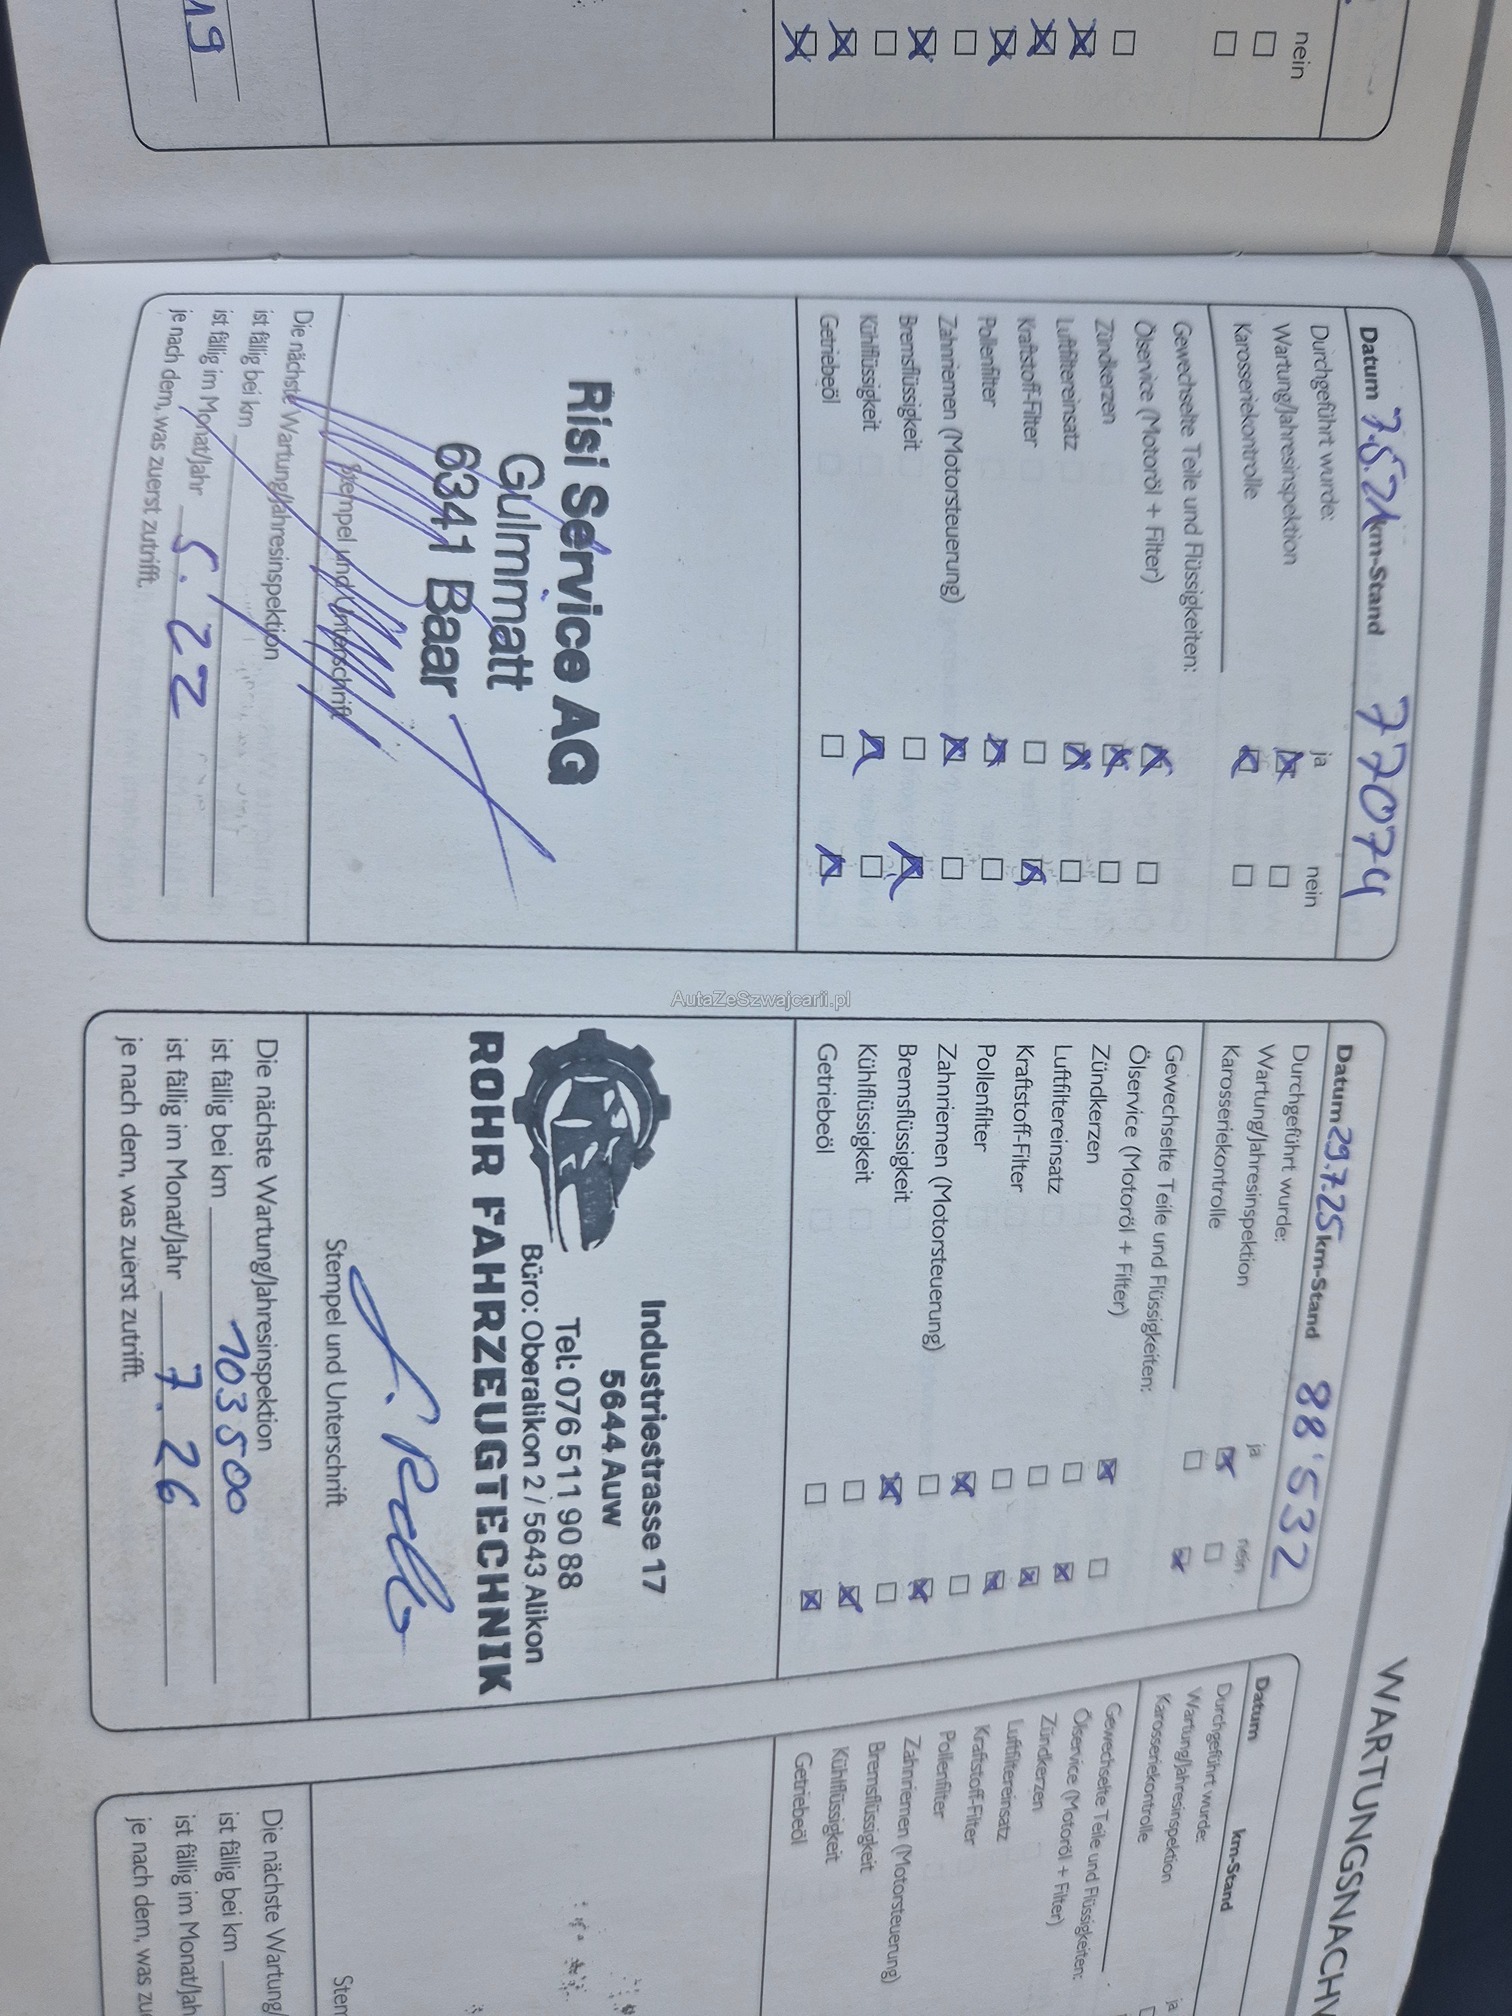 nein
19
WARTUNGSNACHW
Datum 7.5.21 km-Stand 77074
Durchgeführt wurde: ja nein
Wartung/Jahresinspektion
Karosseriekontrolle
Gewechselte Teile und Flüssigkeiten:
Ölservice (Motoröl + Filter)
Zündkerzen
Luftfiltereinsatz
Kraftstoff-Filter
Pollenfilter
Zahnriemen (Motorsteuerung)
Bremsflüssigkeit
Kühlflüssigkeit
Getriebeöl
Risi Service AG
Gulmmatt
6341 Baar
Stempel und Unterschrift
Die nächste Wartung/Jahresinspektion
ist fällig bei km
ist fällig im Monat/Jahr 5.22
je nach dem, was zuerst zutrifft.
AutaZeSzwajcarii.pl
Datum 29.7.25 km-Stand 88'532
Durchgeführt wurde: ja nein
Wartung/Jahresinspektion
Karosseriekontrolle
Gewechselte Teile und Flüssigkeiten:
Ölservice (Motoröl + Filter)
Zündkerzen
Luftfiltereinsatz
Kraftstoff-Filter
Pollenfilter
Zahnriemen (Motorsteuerung)
Bremsflüssigkeit
Kühlflüssigkeit
Getriebeöl
Industriestrasse 17
5644 Auw
Tel: 076 511 90 88
Büro: Oberalikon 2 / 5643 Alikon
ROHR FAHRZEUGTECHNIK
Stempel und Unterschrift
Die nächste Wartung/Jahresinspektion
ist fällig bei km 103500
ist fällig im Monat/Jahr 7.26
je nach dem, was zuerst zutrifft.
Datum km-Stand
Durchgeführt wurde: ja
Wartung/Jahresinspektion
Karosseriekontrolle
Gewechselte Teile und Flüssigkeiten:
Ölservice (Motoröl + Filter)
Zündkerzen
Luftfiltereinsatz
Kraftstoff-Filter
Pollenfilter
Zahnriemen (Motorsteuerung)
Bremsflüssigkeit
Kühlflüssigkeit
Getriebeöl
Stem
Die nächste Wartung/
ist fällig bei km
ist fällig im Monat/Jah
je nach dem, was zu